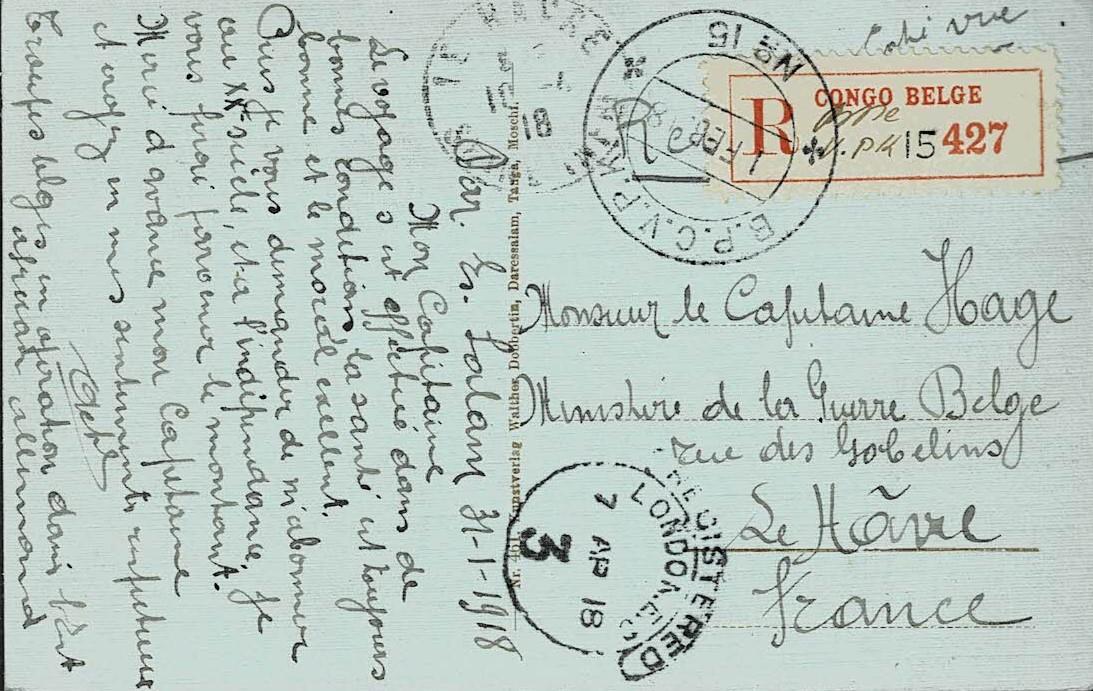 Dar. Es. Salam 31-1-1918
Mon Capitaine
Le voyage s'est effectué dans de
bonnes conditions la santé est toujours
bonne et le moral excellent.
Puis je vous demander de m'abonner
au XXe siècle, et à l'indépendance, je
vous ferai parvenir le montant.
Merci d'avance mon Capitaine
et agréez mes sentiments
Troupes belges en opération dans l'Est
africain allemand
Kunstverlag Walther Dobbertin, Daressalam, Tanga, Moschi.
CONGO BELGE
R
15 427
B.P.C.V.P.K.
No 15
1 FEB 18
18
REGISTERED
LONDON.E.C
7 AP 18
3
Monsieur le Capitaine Hage
Ministère de la Guerre Belge
rue des Gobelins
Le Hâvre
France